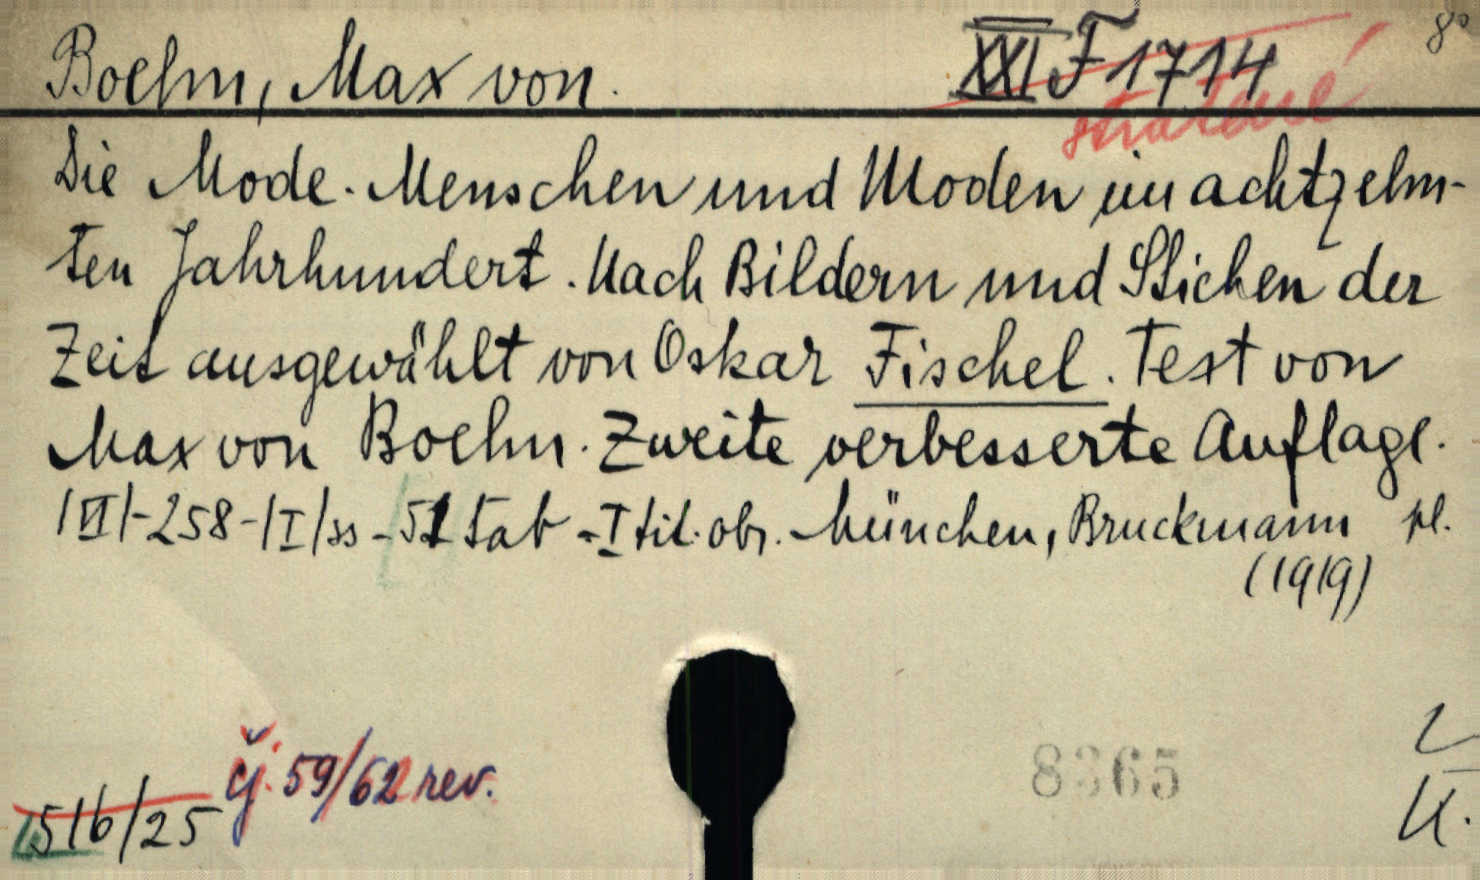 Boehn, Max von. XXI F 1714 8°
ztracené
Die Mode. Menschen und Moden im achtzehn-
ten Jahrhundert. Nach Bildern und Stichen der
Zeit ausgewählt von Oskar Fischel. Text von
Max von Boehn. Zweite verbesserte Auflage.
|VI|-258-|I|ss-51 tab-I tit. obr. München, Bruckmann pl.
(1919)
čj. 59/62 rev.
516/25
8365